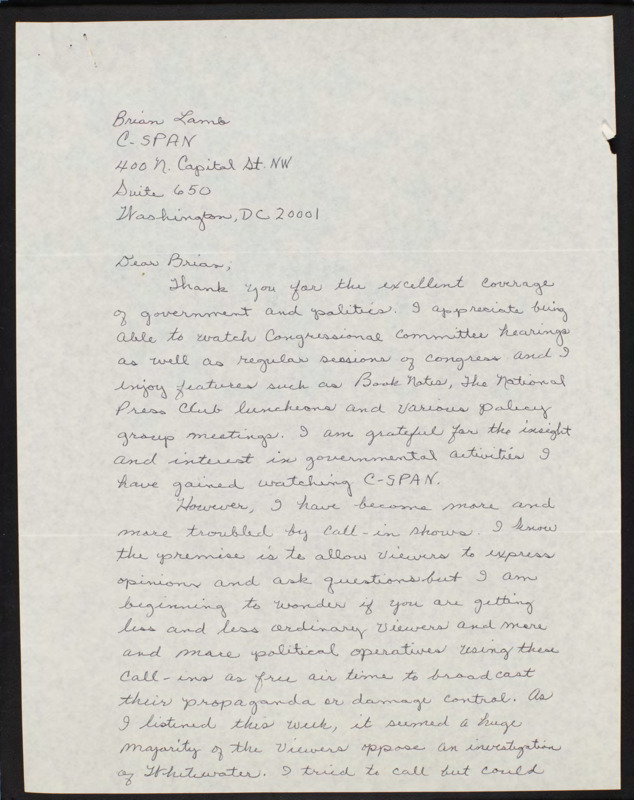 Brian Lamb
C-SPAN
400 N. Capital St. NW
Suite 650
Washington, DC 20001
Dear Brian,
Thank you for the excellent coverage
of government and politics. I appreciate being
able to watch Congressional Committee hearings
as well as regular sessions of congress and I
enjoy features such as Book Notes, The National
Press Club luncheons and various policy
group meetings. I am grateful for the insight
and interest in governmental activities I
have gained watching C-SPAN.
However, I have become more and
more troubled by call-in shows. I know
the premise is to allow viewers to express
opinions and ask questions but I am
beginning to wonder if you are getting
less and less ordinary viewers and more
and more political operatives using these
call-ins as free air time to broadcast
their propaganda or damage control. As
I listened this week, it seemed a huge
majority of the viewers oppose an investigation
of Whitewater. I tried to call but could